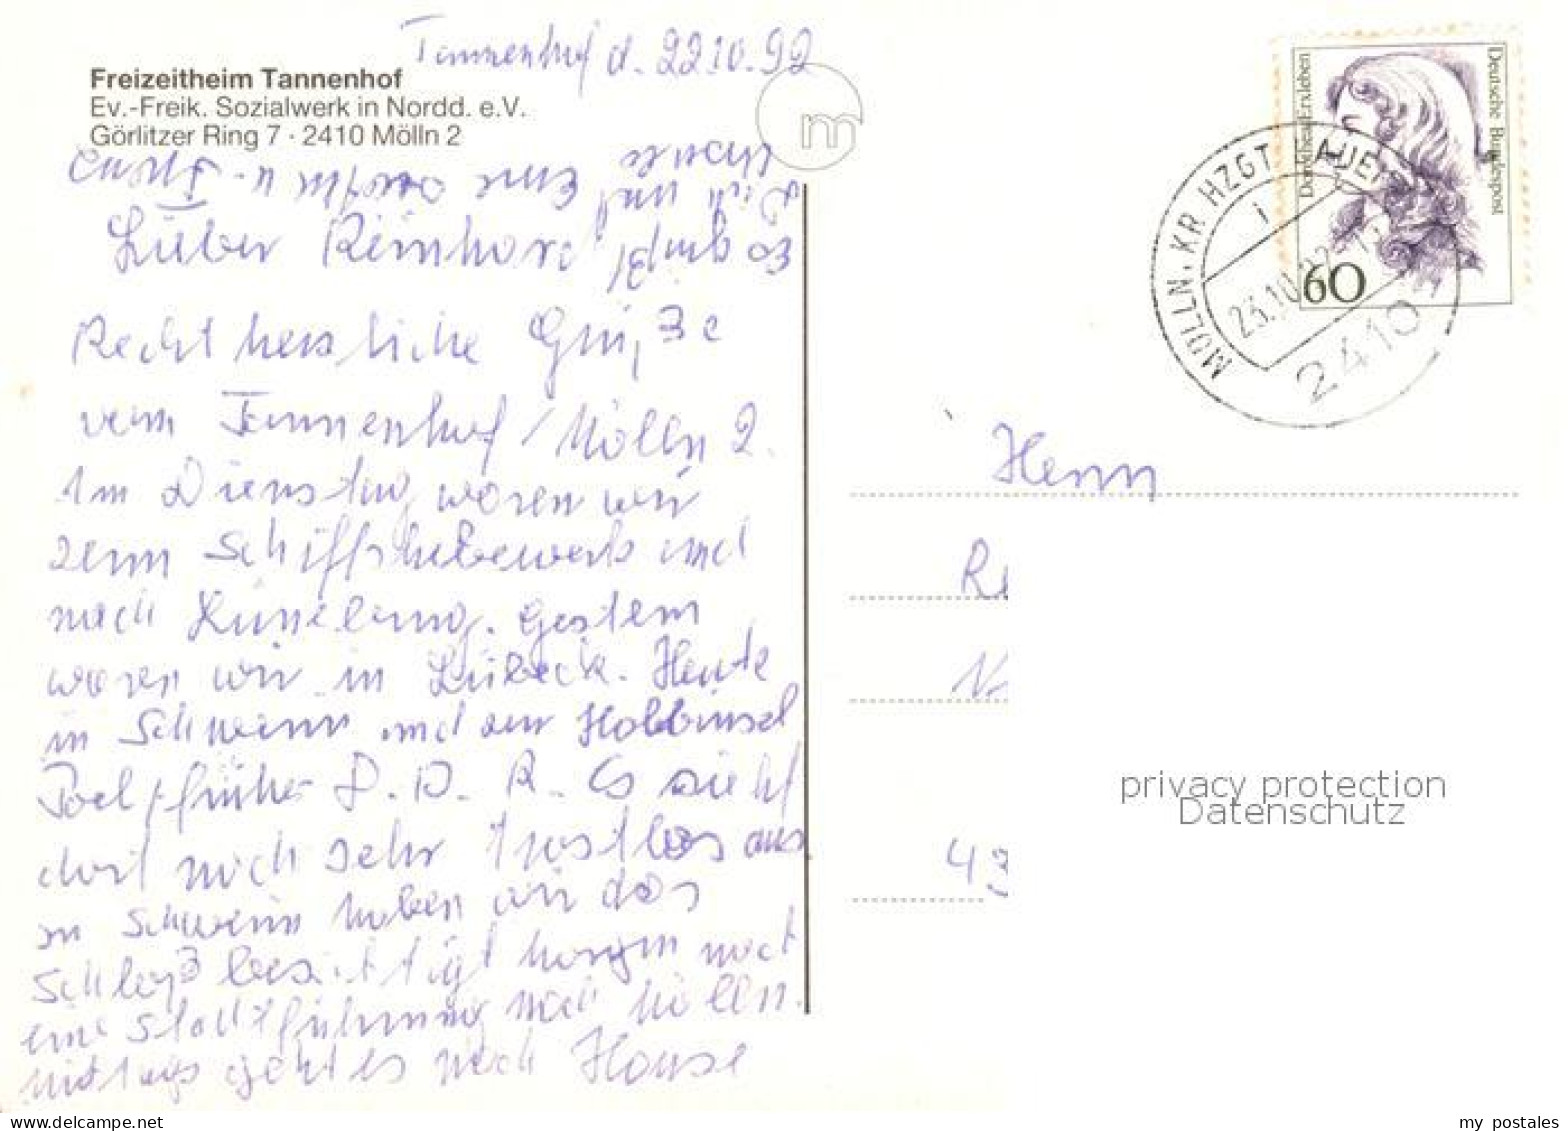 Tannenhof d. 22.10.92
Freizeitheim Tannenhof
Ev.-Freik. Sozialwerk in Nordd. e.V.
Görlitzer Ring 7 · 2410 Mölln 2
m
Lieber Reinhard
Recht herzliche Grüße
vom Tannenhof / Mölln 2.
Am Dienstag waren wir
zum Schiffshebewerk und
nach Lüneburg. Gestern
waren wir in Lübeck. Heute
in Schwerin und der Halbinsel
Poel früher D. D. R. Es sieht
dort noch sehr trostlos aus
in Schwerin haben wir das
Schloß besichtigt morgen noch
eine Stadtführung nach Mölln.
mittags geht es nach Hause
Es grüßt
Dich und
Eure u.
Deutsche Bundespost
Dorothea Erxleben
60
MÖLLN, KR HZGT LAUENB
i
23.10.92
2410
Herrn
Re
N
43
privacy protection
Datenschutz
delcampe.net
my_postales